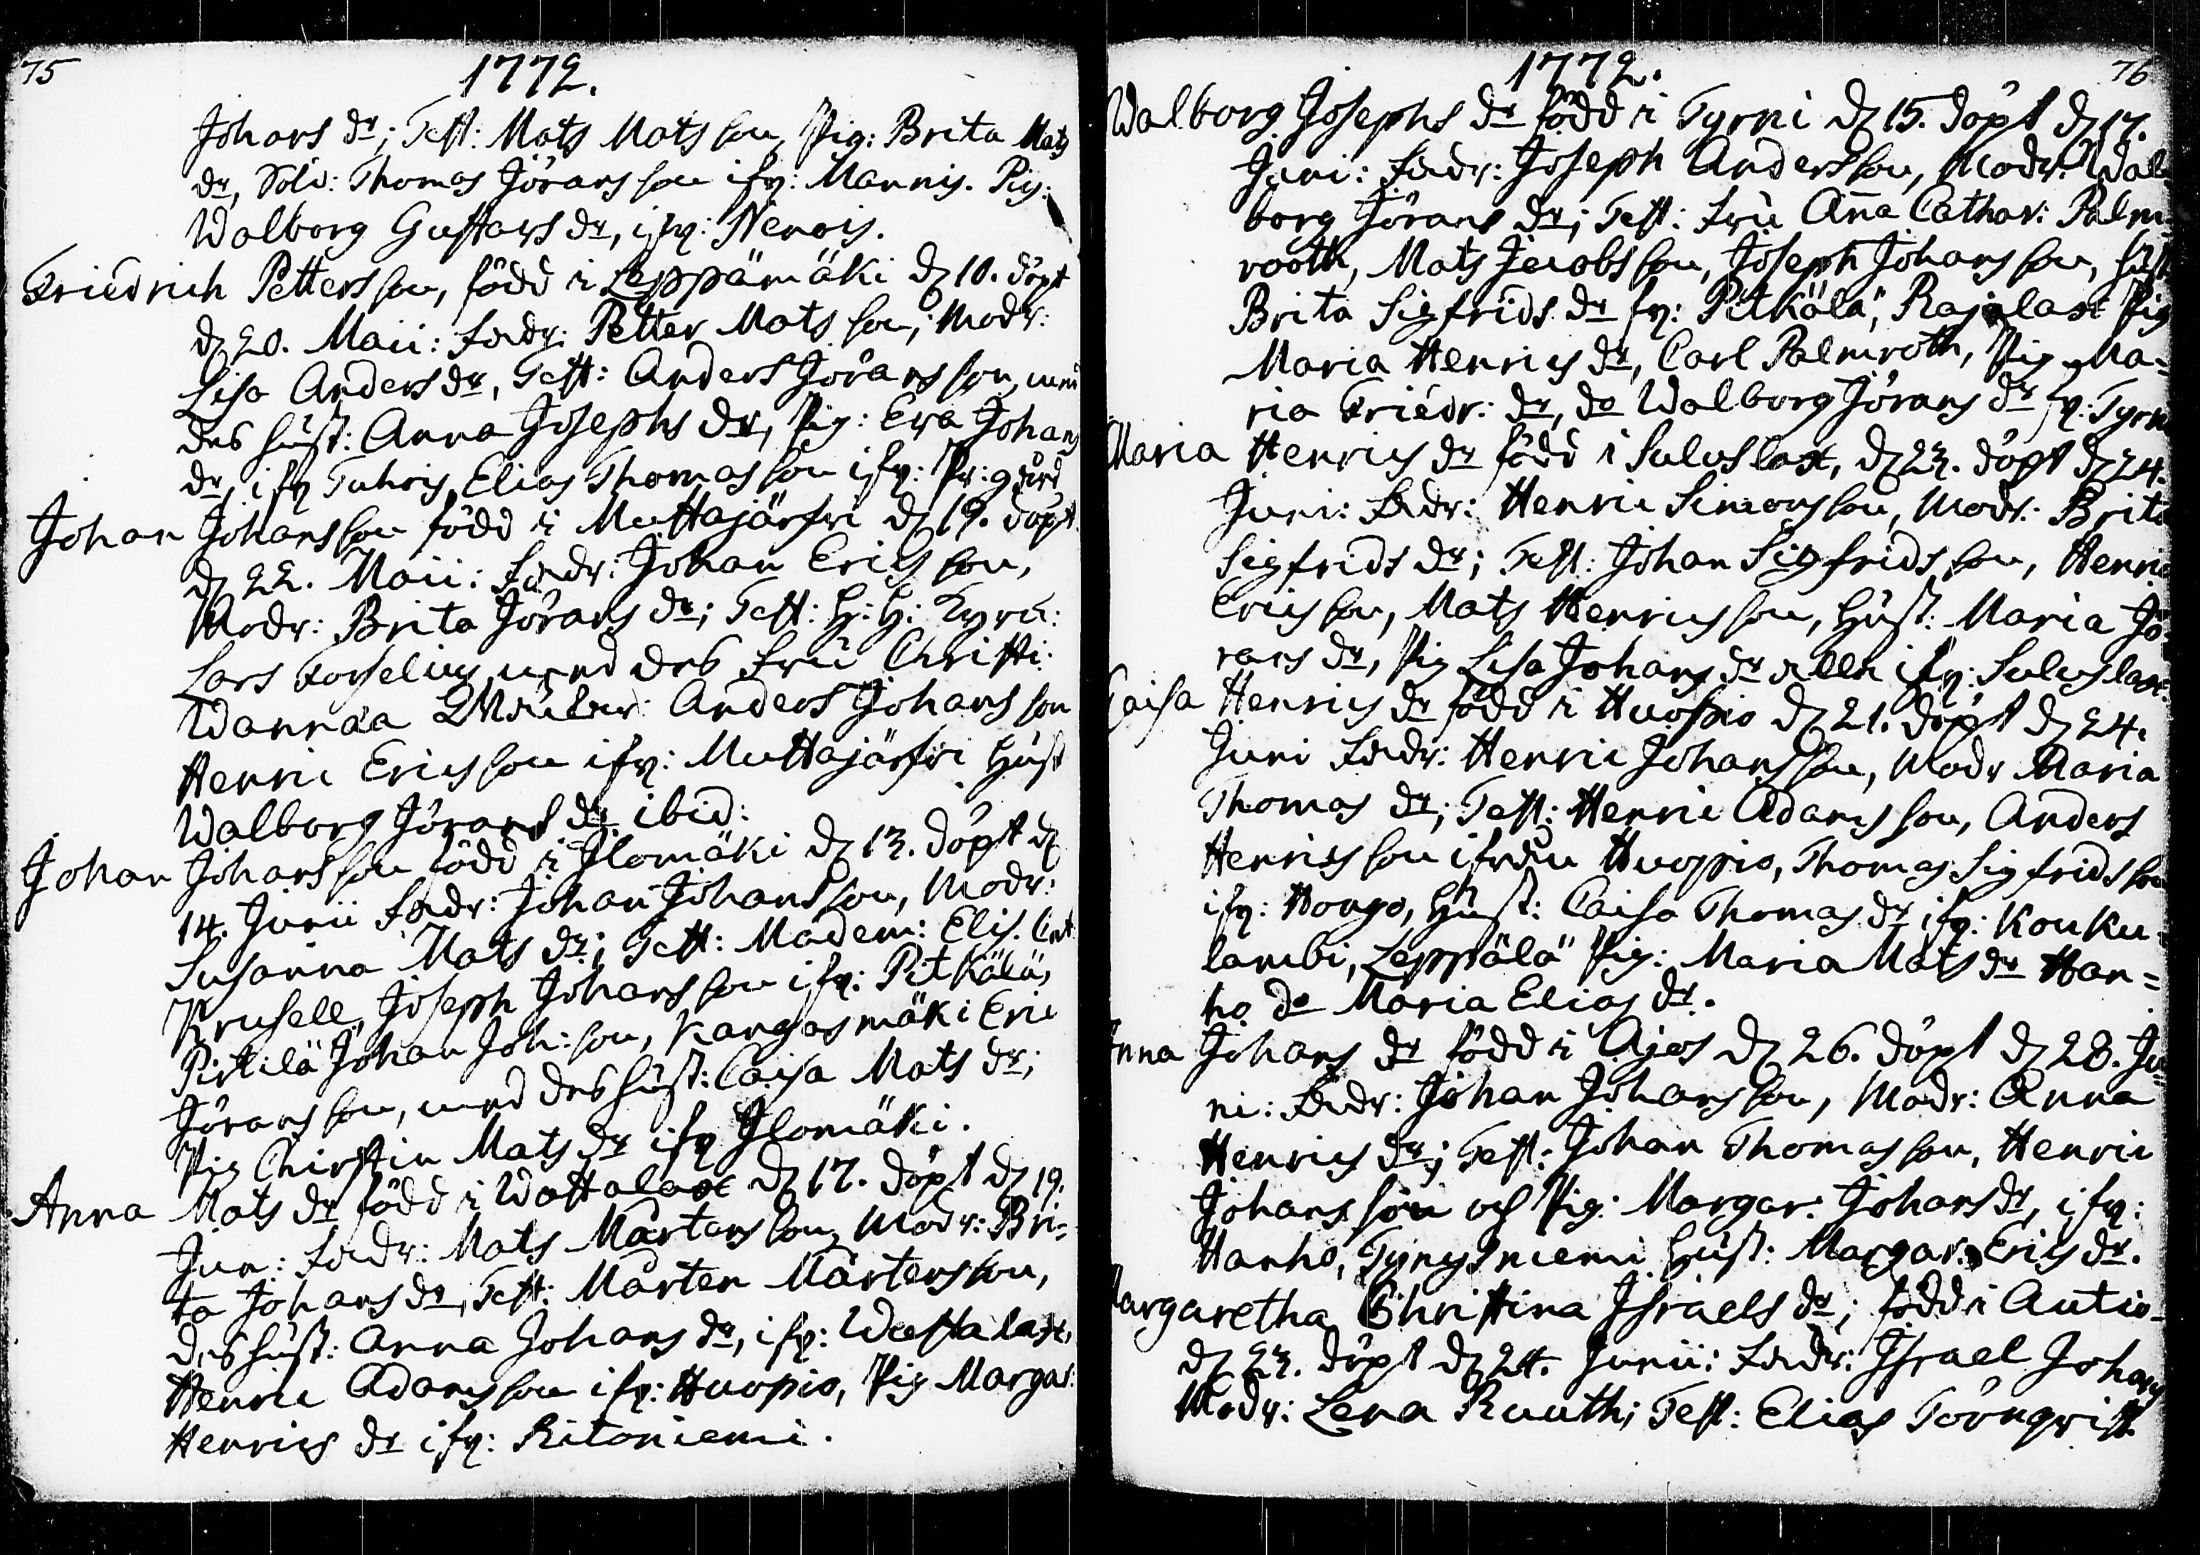 75
1772.
Johans dr; Test: Mats Mats son, Pig: Brita Mats
dr, Sold: Thomas Jörans son ifr: Mannis. Pig:
Walborg Gustavs dr, ifr: Nenois.
Friedrich Petters son, född i Leppämäki d 18. döpt
d 20. Maii: Fadr: Petter Mats son, Modr:
Lisa Anders dr, Test: Anders Jörans son, med
des hust: Anna Josephs dr, Pig: Eva Johans
dr, ifr Tuhris, Elias Thomas son ifr: Pr: gård
Johan Johans son född i Muttajärfvi d 19. döpt
d 22. Maii: Fadr: Johan Erics son,
Modr: Brita Jörans dr; Test: H: H: Kyrck:
Lars Forselius med des Fru Christi:
Wannaa Anders Johans son
Henric Erics son ifr: Muttajärfvi hust
Walborg Jörans dr ibid:
Johan Johans son född i Ilomäki d 13. döpt d
14. Junii Fadr: Johan Johans son, Modr:
Susanna Mats dr; Test: Madem: Elis. Cat
Krusell, Joseph Johans son ifr: Pitkälä,
Pirtilä Johan Joh: son, Kangasmäki Eric
Jörans son, med des hust: Caisa Mats dr;
Pig Chirstin Mats dr ifr Ilomäki.
Anna Mats dr född i Wattalax d 17. döpt d 19.
Jun: Fadr: Mats Mårtens son, Modr: Bri-
ta Johans dr, Test: Mårten Mårtens son,
des hust: Anna Johans dr, ifr: Wattalax,
Henric Adams son ifr: Huopio, Pig Margar:
Henrics dr ifr: Ritoniemi.
76
1772.
Walborg Josephs dr född i Tyrni d 15. döpt d 17.
Juni: Fadr: Joseph Anders son, Modr: Wal-
borg Jörans dr; Test: Fru Anna Cathar: Palm-
rooth, Mats Jacobs son, Joseph Johans son, hust
Brita Sigfrids dr fr: Pitkälä, Rajalax Pig
Maria Henrics dr, Carl Palmroth, Pig Ma-
ria Friedr: dr, do Walborg Jörans dr fr: Tyrni
Maria Henrics dr född i Suluslax, d 23. döpt d 24.
Juni: Fadr: Henric Simons son, Modr: Brita
Sigfrids dr; Test: Johan Sigfrids son, Henric
Erics son, Mats Henrics son, Hust: Maria Jö-
rans dr, Pig Lisa Johans dr alla ifr: Suluslax.
Caisa Henrics dr född i Huopio d 21. döpt d 24.
Juni Fadr: Henric Johans son, Modr Maria
Thomas dr; Test: Henric Adams son, Anders
Henrics son ifrån Huopio, Thomas Sigfrids son
ifr: Hongo, Hust: Caisa Thomas dr ifr: Kouku-
lambi, Leppälä Pig: Maria Mats dr Han=
ho do Maria Elias dr.
Anna Johans dr född i Ajos d 26. döpt d 28. Ju-
ni: Fadr: Johan Johans son, Modr: Anna
Henrics dr; Test: Johan Thomas son, Henric
Johans son och Pig: Margar: Johans dr, ifr:
Hanho, Tynysniemi Hust: Margar: Erics dr.
Margaretha Christina Israels dr; född i Autio-
d 23. döpt d 24. Junii: Fadr: Israel Johans
Modr: Lena Ruuth; Test: Elias Törnqvist.